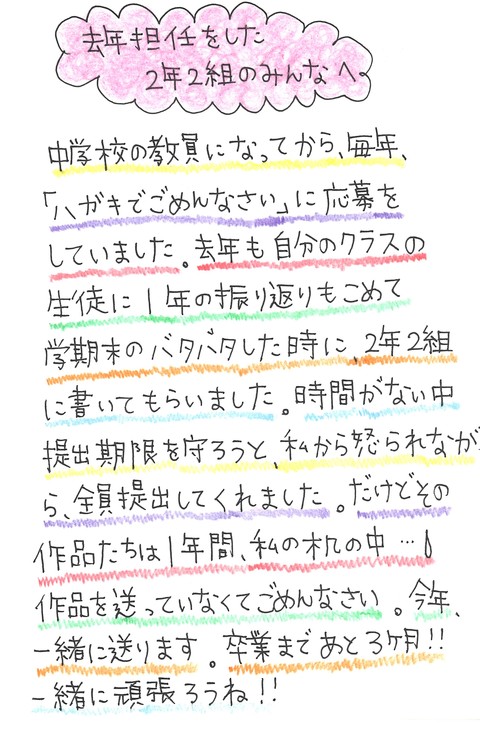 去年担任をした
2年2組のみんなへ。
中学校の教員になってから、毎年、
「ハガキでごめんなさい」に応募を
していました。去年も自分のクラスの
生徒に1年の振り返りもこめて
学期末のバタバタした時に、2年2組
に書いてもらいました。時間がない中
提出期限を守ろうと、私から怒られなが
ら、全員提出してくれました。だけどその
作品たちは1年間、私の机の中…!
作品を送っていなくてごめんなさい。今年、
一緒に送ります。卒業まであと3ケ月!!
一緒に頑張ろうね!!